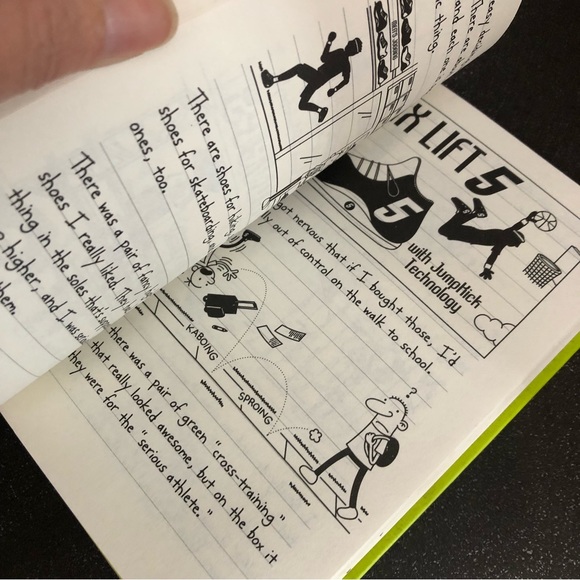 There are shoes for
shoes for skateboarding
ones, too.
There was a pair of fancy
shoes I really liked. They
thing in the soles that's
higher, and I was
them.
easy
There are
and each one
thing.
X LIFT 5
5
with JumpKick
Technology
got nervous that if I bought those, I'd
out of control on the walk to school.
KABOING
SPROING
?
there was a pair of green "cross-training"
that really looked awesome, but on the box it
they were for the "serious athlete."